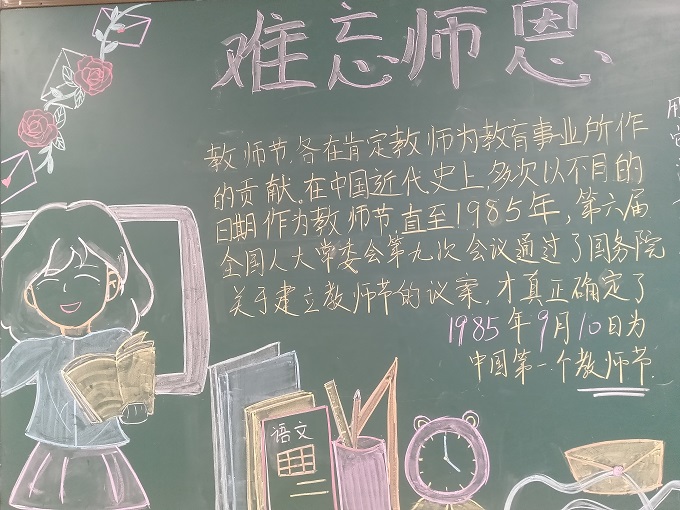 难忘师恩
教师节,各在肯定教师为教育事业所作
的贡献。在中国近代史上,多次以不同的
日期作为教师节.直至1985年,第六届
全国人大常委会第九次会议通过了国务院
关于建立教师节的议案,才真正确定了
1985年9月10日为
中国第一个教师节.
语文